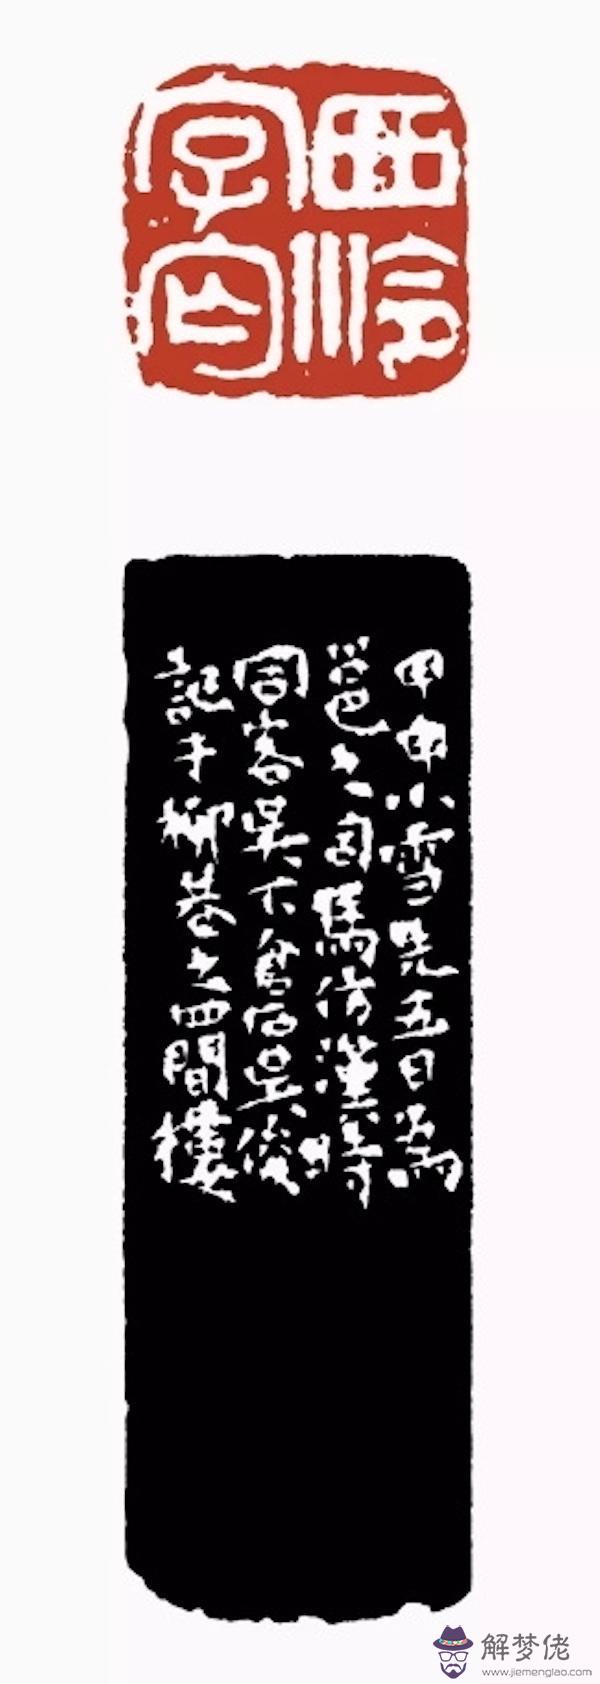 西泠
字匄
甲申小雪先五日為
邕之司馬仿漢時
同客吳下倉石吳俊
記于柳巷之四間樓
解梦佬
www.jiemenglao.com